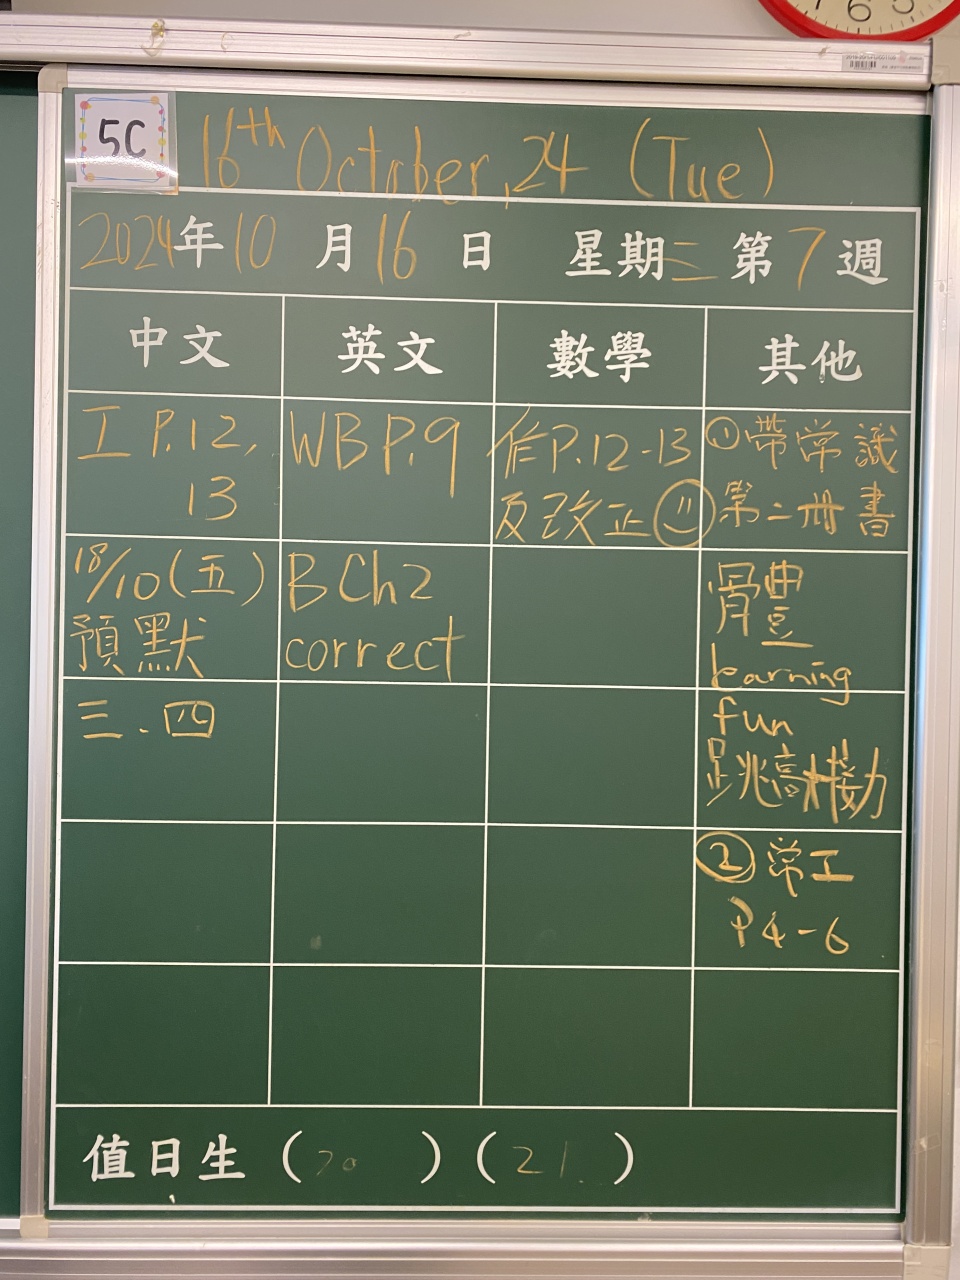 5C
16th October, 24 (Tue)
2024年10月16日 星期三 第7週
中文 英文 數學 其他
工 P.12,
13
WB P.9
作P.12-13
及改正
① 帶常識
第二冊書
18/10(五)
預默
B Ch2
correct
體
learning
三.四
fun
跳高
② 常工
P4-6
值日生 (20) (21)
6
5